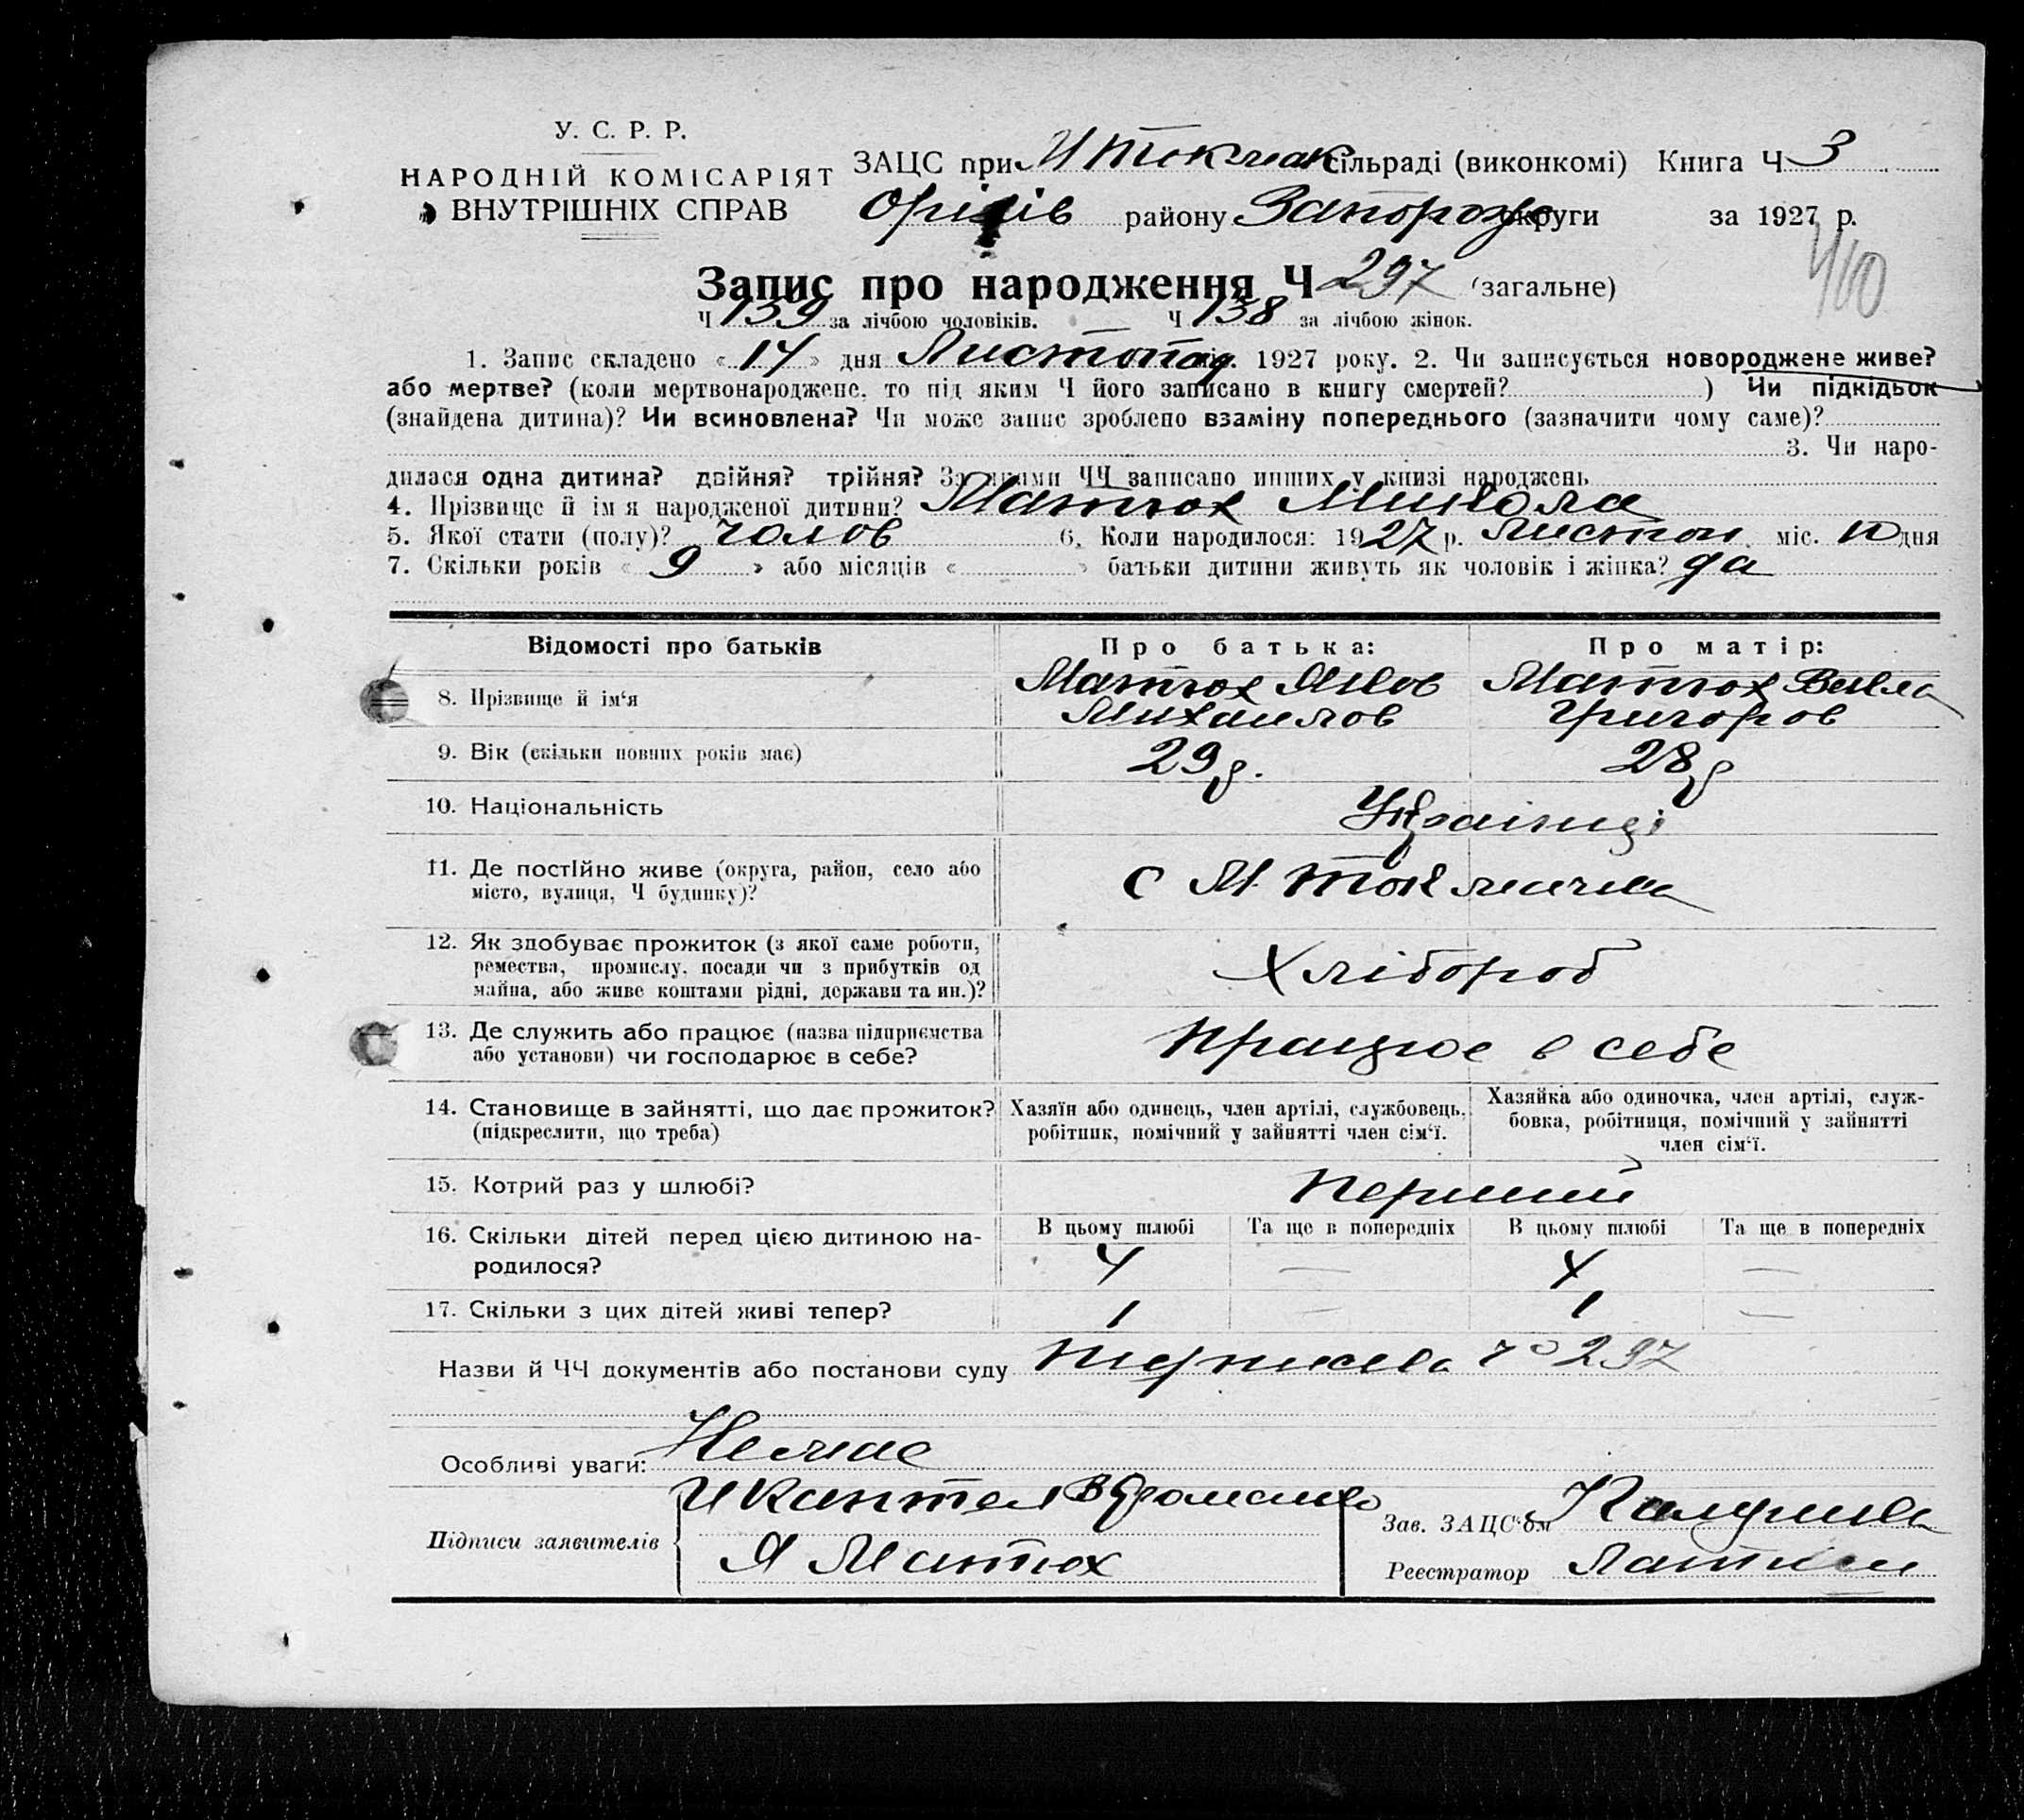 У. С. Р. Р.
НАРОДНІЙ КОМІСАРІЯТ
ВНУТРІШНІХ СПРАВ
ЗАЦС при М Токмак сільраді (виконкомі) Книга Ч 3
Оріхів району Запорож округи за 1927 р.
Запис про народження Ч 297 (загальне)
Ч 159 за лічбою чоловіків. Ч 138 за лічбою жінок.
1. Запис складено « 14 » дня Листопад 1927 року. 2. Чи записується новороджене живе?
або мертве? (коли мертвонароджене, то під яким Ч його записано в книгу смертей? ) Чи підкідьок
(знайдена дитина)? Чи всиновлена? Чи може запис зроблено взаміну попереднього (зазначити чому саме)?
3. Чи наро-
дилася одна дитина? двійня? трійня? За якими ЧЧ записано инших у книзі народжень
4. Прізвище й ім я народженої дитини? Матюх Микола
5. Якої стати (полу)? чолов 6. Коли народилося: 1927 р. Листоп міс. 10 дня
7. Скільки років « 9 » або місяців « » батьки дитини живуть як чоловік і жінка? да
Відомості про батьків Про батька: Про матір:
8. Прізвище й ім‘я Матюх Яков Михаилов Матюх Векла Григоров
9. Вік (скільки повних років має) 29 р. 28 р
10. Національність Українці
11. Де постійно живе (округа, район, село або
місто, вулиця, Ч будинку)? с М. Токмачка
12. Як здобуває прожиток (з якої саме роботи,
ремества, промислу, посади чи з прибутків од
майна, або живе коштами рідні, держави та ин.)? Хлібороб
13. Де служить або працює (назва підприємства
або установи) чи господарює в себе? Працює в себе
14. Становище в зайнятті, що дає прожиток?
(підкреслити, що треба)
Хазяїн або одинець, член артілі, службовець,
робітник, помічний у зайнятті член сім‘ї.
Хазяйка або одиночка, член артілі, служ-
бовка, робітниця, помічний у зайнятті
член сім‘ї.
15. Котрий раз у шлюбі? Перший
16. Скільки дітей перед цією дитиною на-
родилося?
В цьому шлюбі Та ще в попередніх В цьому шлюбі Та ще в попередніх
4 — 4 —
17. Скільки з цих дітей живі тепер? 1 — 1 —
Назви й ЧЧ документів або постанови суду 297
Особливі уваги: Немае
Підписи заявителів
Я Матюх
Зав. ЗАЦС‘ом
Реєстратор